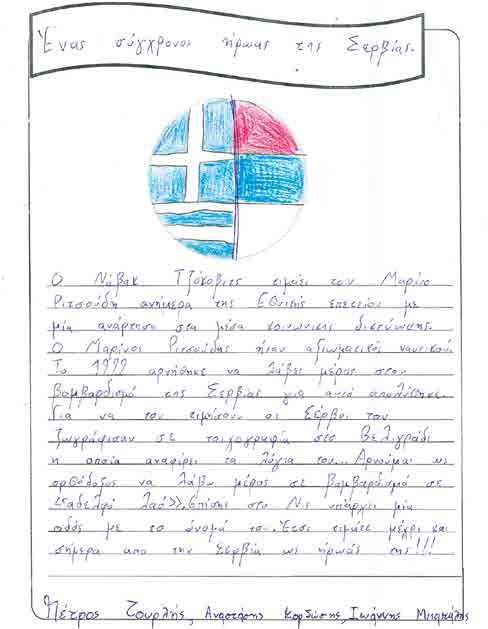 Ένας σύγχρονος ήρωας της Σερβίας.
Ο Νόβακ Τζόκοβιτς τιμάει τον Μαρίνο
Ριτσούδη ανήμερα της Εθνικής επετείου με
μία ανάρτηση στα μέσα κοινωνικής δικτύωσης.
Ο Μαρίνος Ριτσούδης ήταν αξιωματικός ναυτικού.
Το 1999 αρνήθηκε να λάβει μέρος στον
βομβαρδισμό της Σερβίας για αυτό απολύθηκε.
Για να τον τιμήσουν οι Σέρβοι τον
ζωγράφισαν σε τοιχογραφία στο Βελιγράδι
η οποία αναφέρει τα λόγια του... Αρνούμαι ως
ορθόδοξος να λάβω μέρος σε βομβαρδισμό σε
<<αδελφό λαό>>. Επίσης στο Νις υπάρχει μία
οδός με το όνομά του. Έτσι τιμάτε μέχρι και
σήμερα απο την Σερβία ως ήρωάς της!!!
Πέτρος Τζουρλής, Αναστάσης Κορδώσης, Ιωάννης